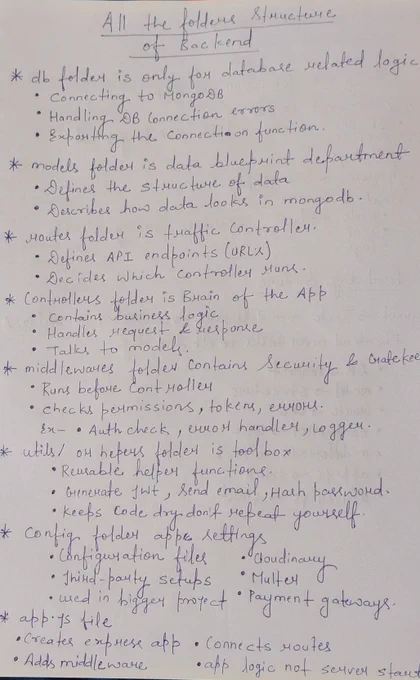 All the folders Structure
of Backend
* db folder is only for database related logic
• Connecting to MongoDB
• Handling DB Connection errors
• Exporting the Connection function.
* models folder is data blueprint department
• Defines the structure of data
• Describes how data looks in mongodb.
* routes folder is traffic Controller.
• Defines API endpoints (URLs)
• Decides which Controller runs.
* Controllers folder is Brain of the App
• Contains business logic
• Handles request & response
• Talks to models.
* middlewares folder Contains Security & Gatekee
• Runs before Controller
• checks permissions, tokens, errors.
Ex- • Auth check, error handler, Logger.
* utils/ or hepers folder is toolbox
• Reusable helper functions.
• Generate JWT, Send email, Hash password.
• Keeps Code dry don't repeat yourself.
* Config folder apps settings
• Configuration files • Cloudinary
• Third-party setups • Multer
• used in bigger project • Payment gateways.
* app.js file
• Creates express app • Connects routes
• Adds middleware • app logic not server start